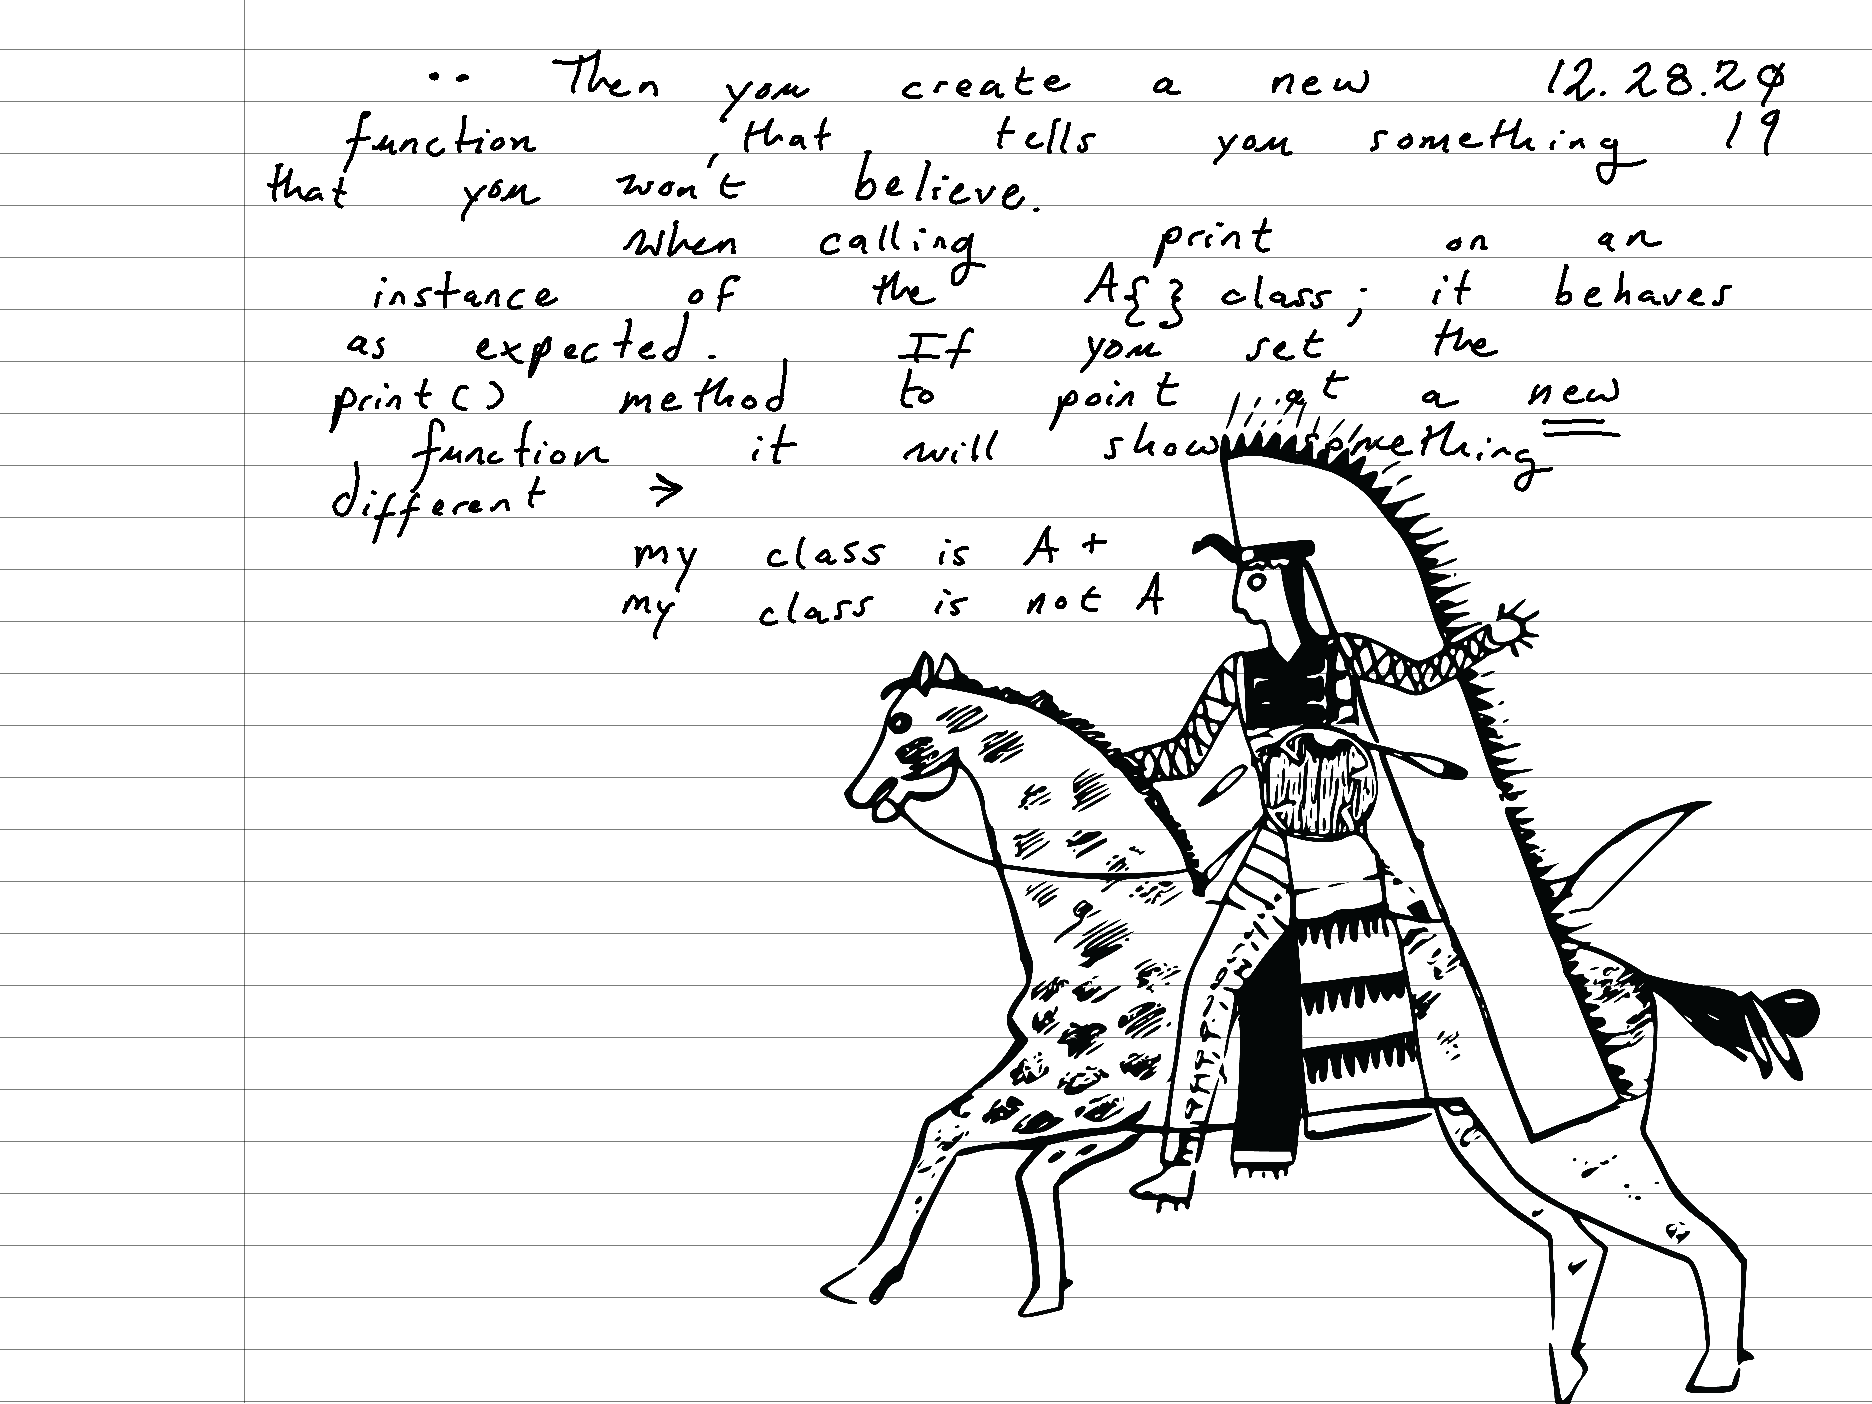 .. Then you create a new 12.28.20
function, that tells you something 19
that you won't believe.
when calling print on an
instance of the A{} class; it behaves
as expected. If you set the
print() method to point at a new
function it will show something
different →
my class is A +
my class is not A